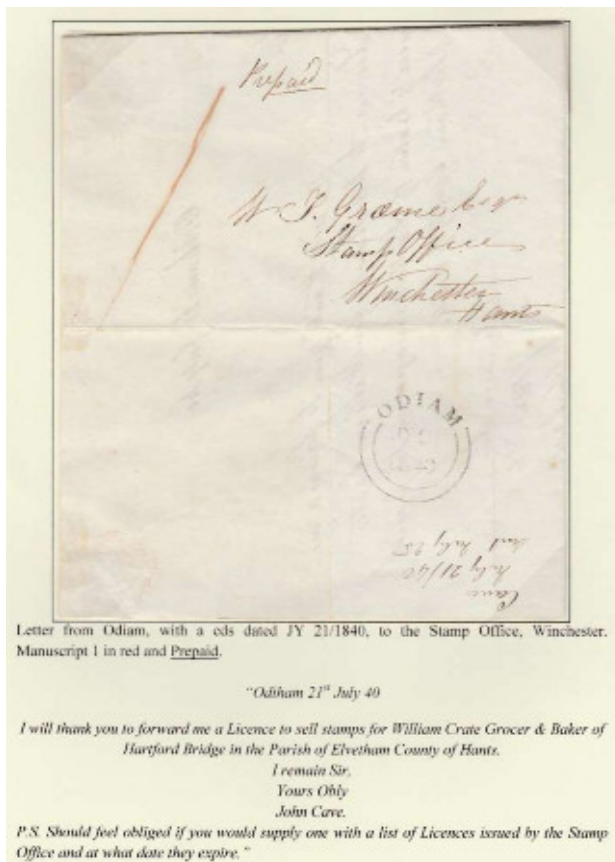 Prepaid
W T. Græme Esqr
Stamp Office
Winchester
Hants
ODIAM
Cave
July 21/40
July 25
Letter from Odiam, with a cds dated JY 21/1840, to the Stamp Office, Winchester.
Manuscript 1 in red and Prepaid.
"Odiham 21st July 40
I will thank you to forward me a Licence to sell stamps for William Crate Grocer & Baker of
Hartford Bridge in the Parish of Elvetham County of Hants.
I remain Sir,
Yours Obly
John Cave.
P.S. Should feel obliged if you would supply one with a list of Licences issued by the Stamp
Office and at what date they expire."